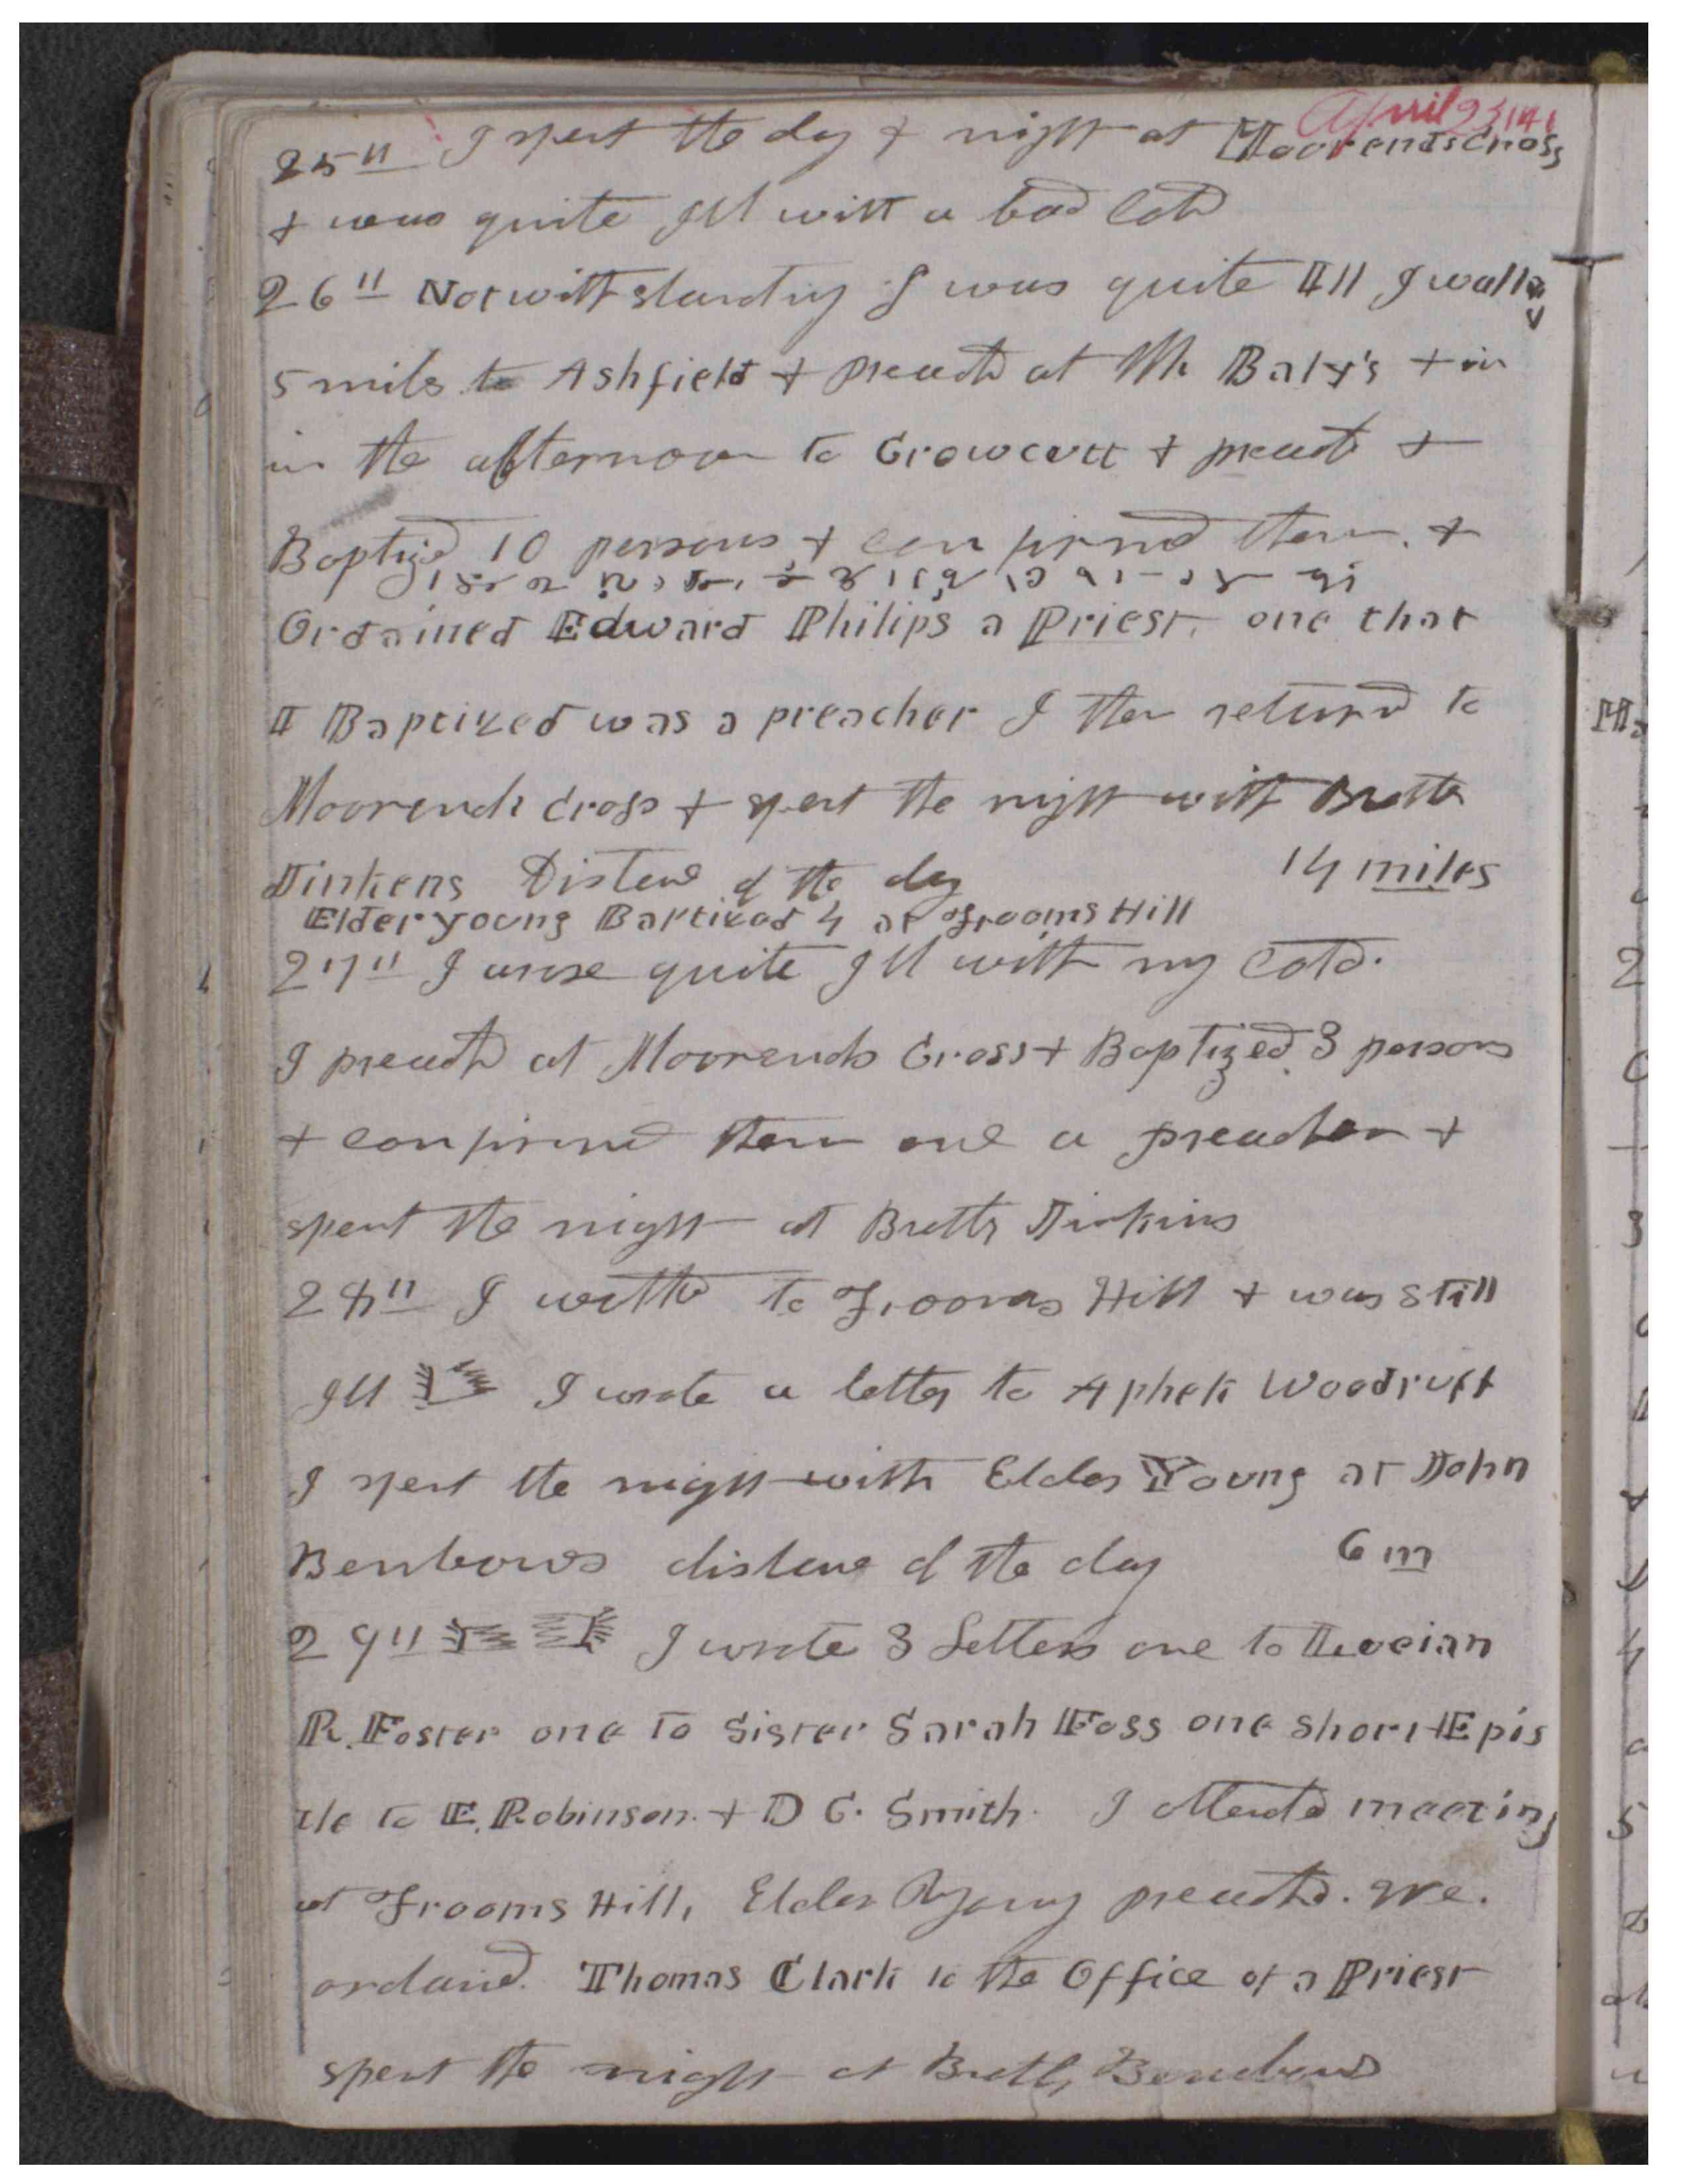 April 25th 41
25th I spent the day & night at Moorends Cross
& was quite Ill with a bad Cold
26th Notwithstanding I was quite Ill I walked
5 miles to Ashfield & preachd at Mr Baly's & in
in the afternoon to Crowcutt & preach &
Baptized 10 persons & confirmd them. &
Ordained Edward Philips a Priest, one that
I Baptized was a preacher I then returnd to
Moorends Cross & spent the night with Brother
Jinkens Distance of the day 14 miles
Elder Young Baptized 4 at Frooms Hill
27th I arose quite Ill with my Cold.
I preachd at Moorends Cross & Baptized 3 persons
& confirmd them one a preacher &
spent the night at Brother Jinkins
28th I walked to Frooms Hill & was still
Ill I wrote a letter to Aphek Woodruff
I spent the night with Elder Young at John
Benbows distance of the day 6 m
29th I wrote 3 Letters one to
R. Foster one to Sister Sarah Foss one short Epis
tle to E. Robinson. & D C. Smith. I attended meeting
at Frooms Hill, Elder Young preachd. We.
ordaind. Thomas Clark to the Office of a Priest
spent the night at Brother Benbows